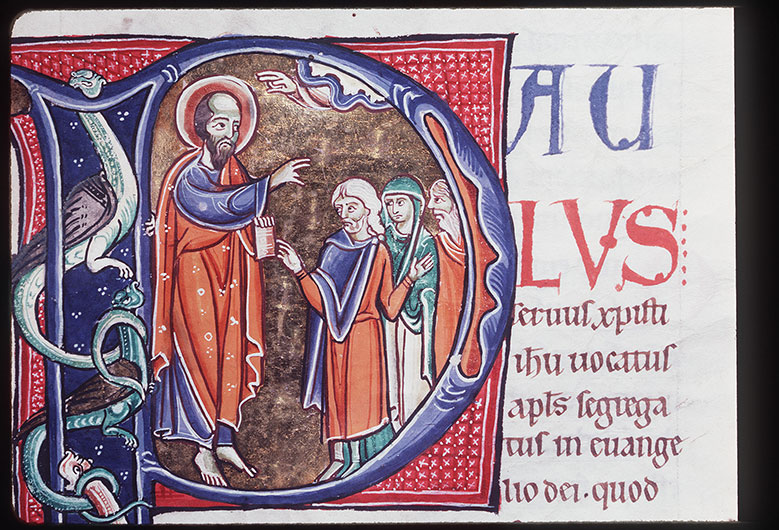 PAU
LVS
seruus xpisti
ihu uocatus
apls segrega
tus in euange
lio dei. quod